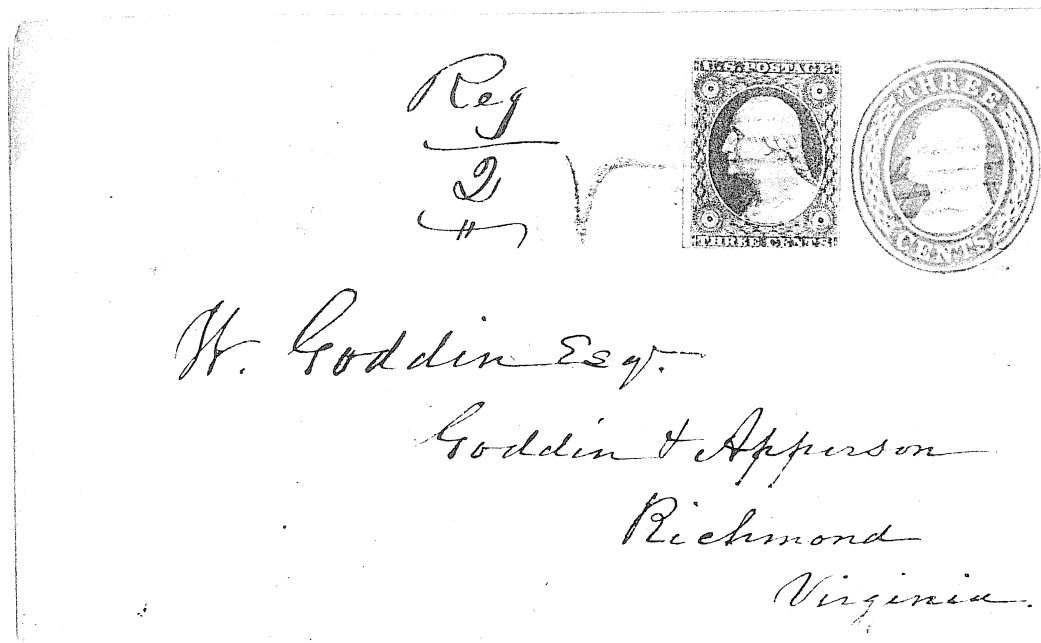 Reg
2
U.S. POSTAGE
THREE CENTS
THREE
CENTS
W. Goddin Esqr.
Goddin & Apperson
Richmond
Virginia.